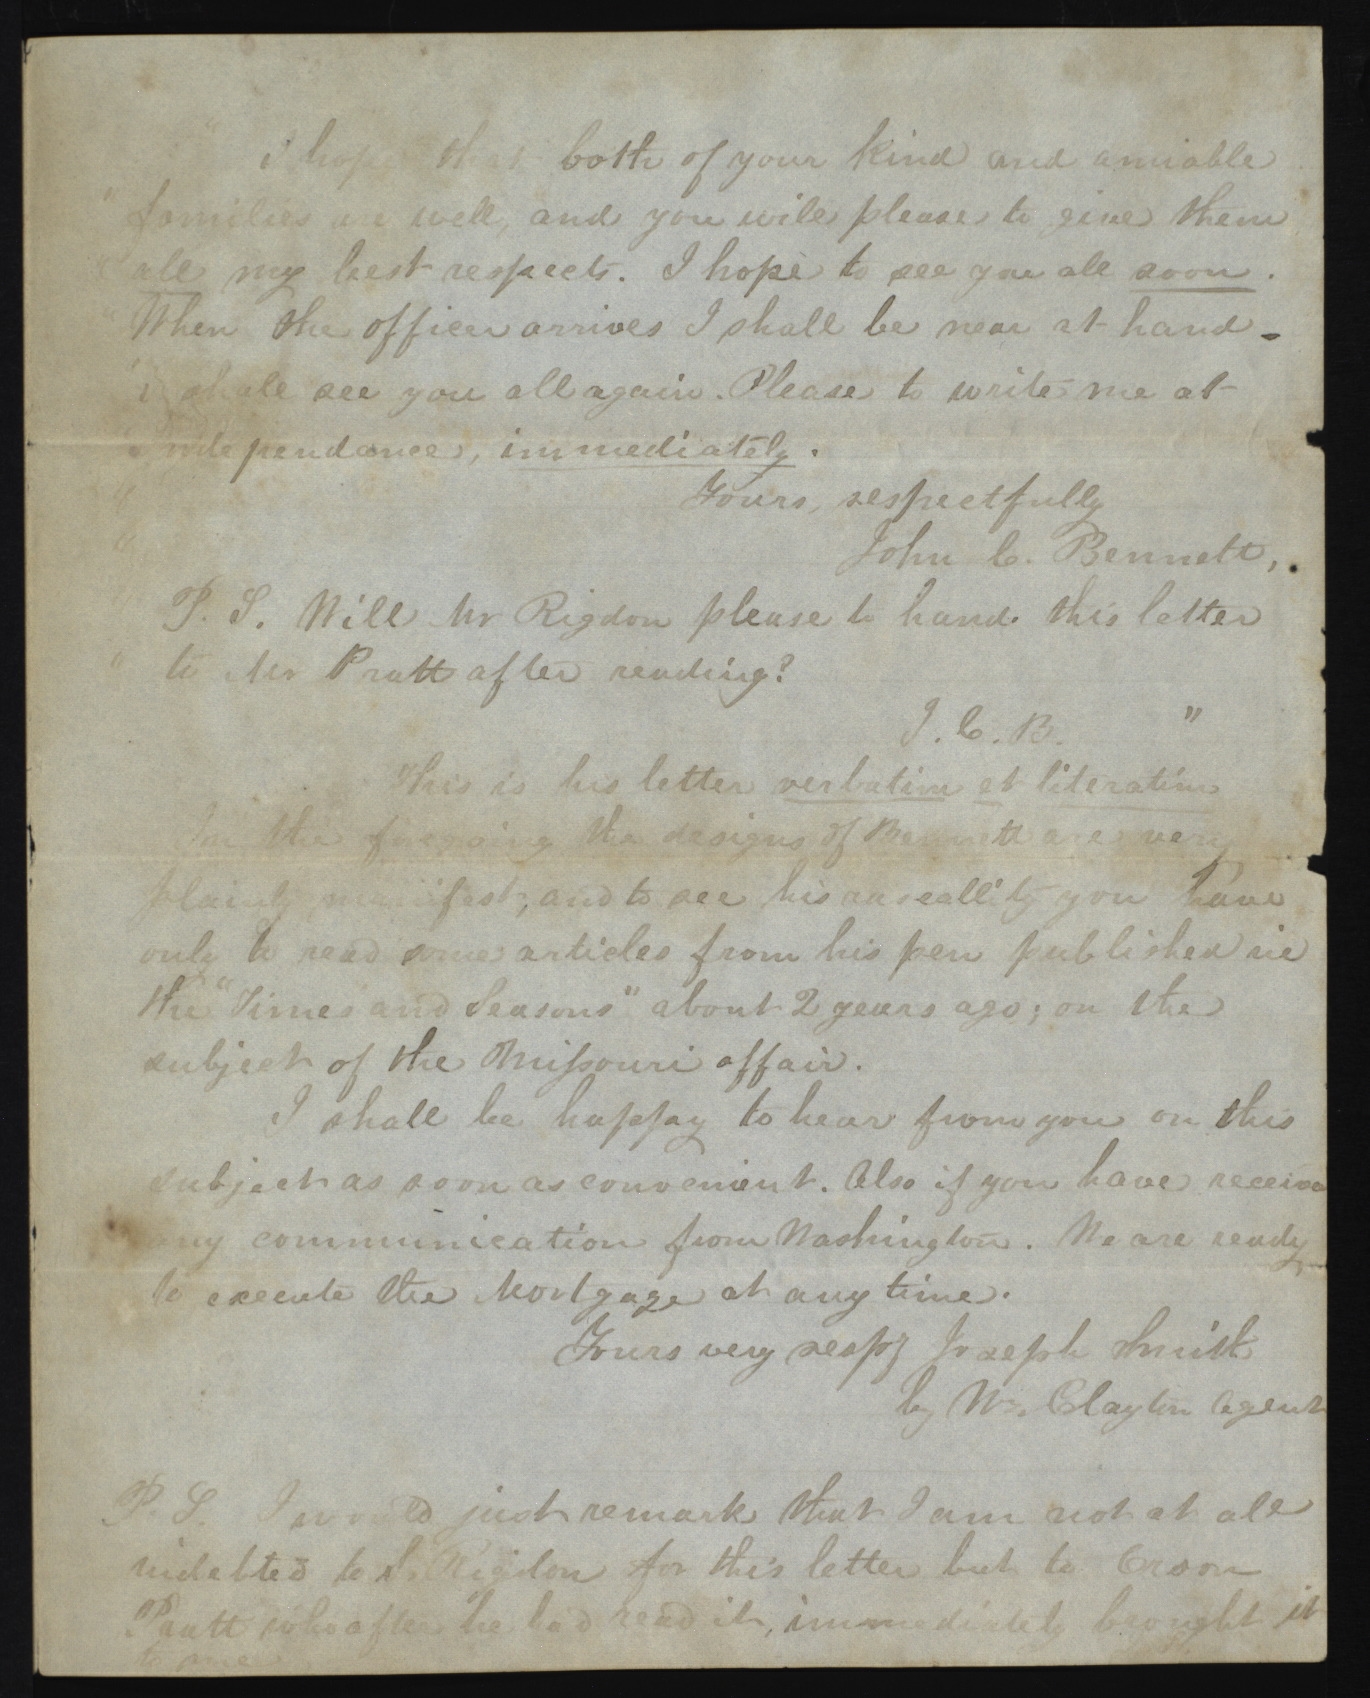 " I hope that both of your kind and amiable
" families are well, and you will please to give them
" all my best respects. I hope to see you all soon.
" When the officer arrives I shall be near at hand -
" I shall see you all again. Please to write me at
" Independance, immediately.
" Yours, respectfully
" John C. Bennett,
" P. S. Will Mr Rigdon please to hand this letter
" to Mr Pratt after reading?
J. C. B. "
This is his letter verbatim et literatim
In the foregoing the designs of Bennett are very
plainly manifest; and to see his rascallity you have
only to read some articles from his pen published in
the "Times and Seasons" about 2 years ago; on the
subject of the Missouri affair.
I shall be happy to hear from you on this
subject as soon as convenient. Also if you have receivd
any communication from Washington. We are ready
to execute the Mortgage at any time.
Yours very respy Joseph Smith
by Wm. Clayton Agent
P. S. I would just remark that I am not at all
indebted to S. Rigdon for this letter but to Orson
Pratt who after he had read it, immediately brought it
to me